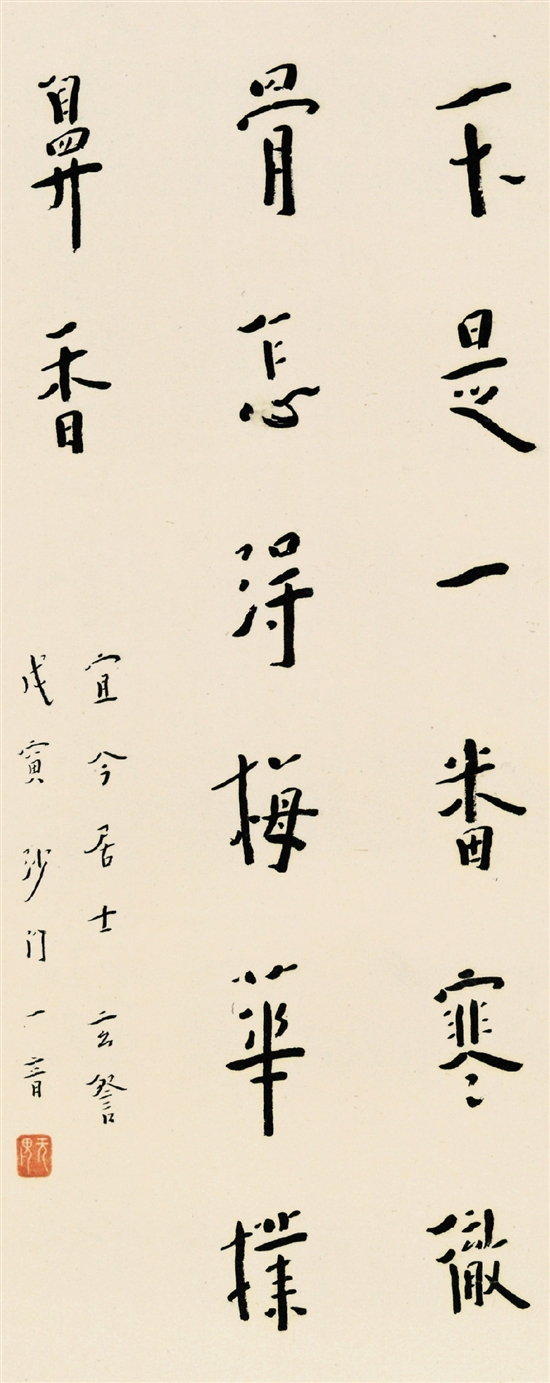 不是一番寒徹
骨怎得梅華撲
鼻香
宜今居士玄詧
戊寅沙门一音